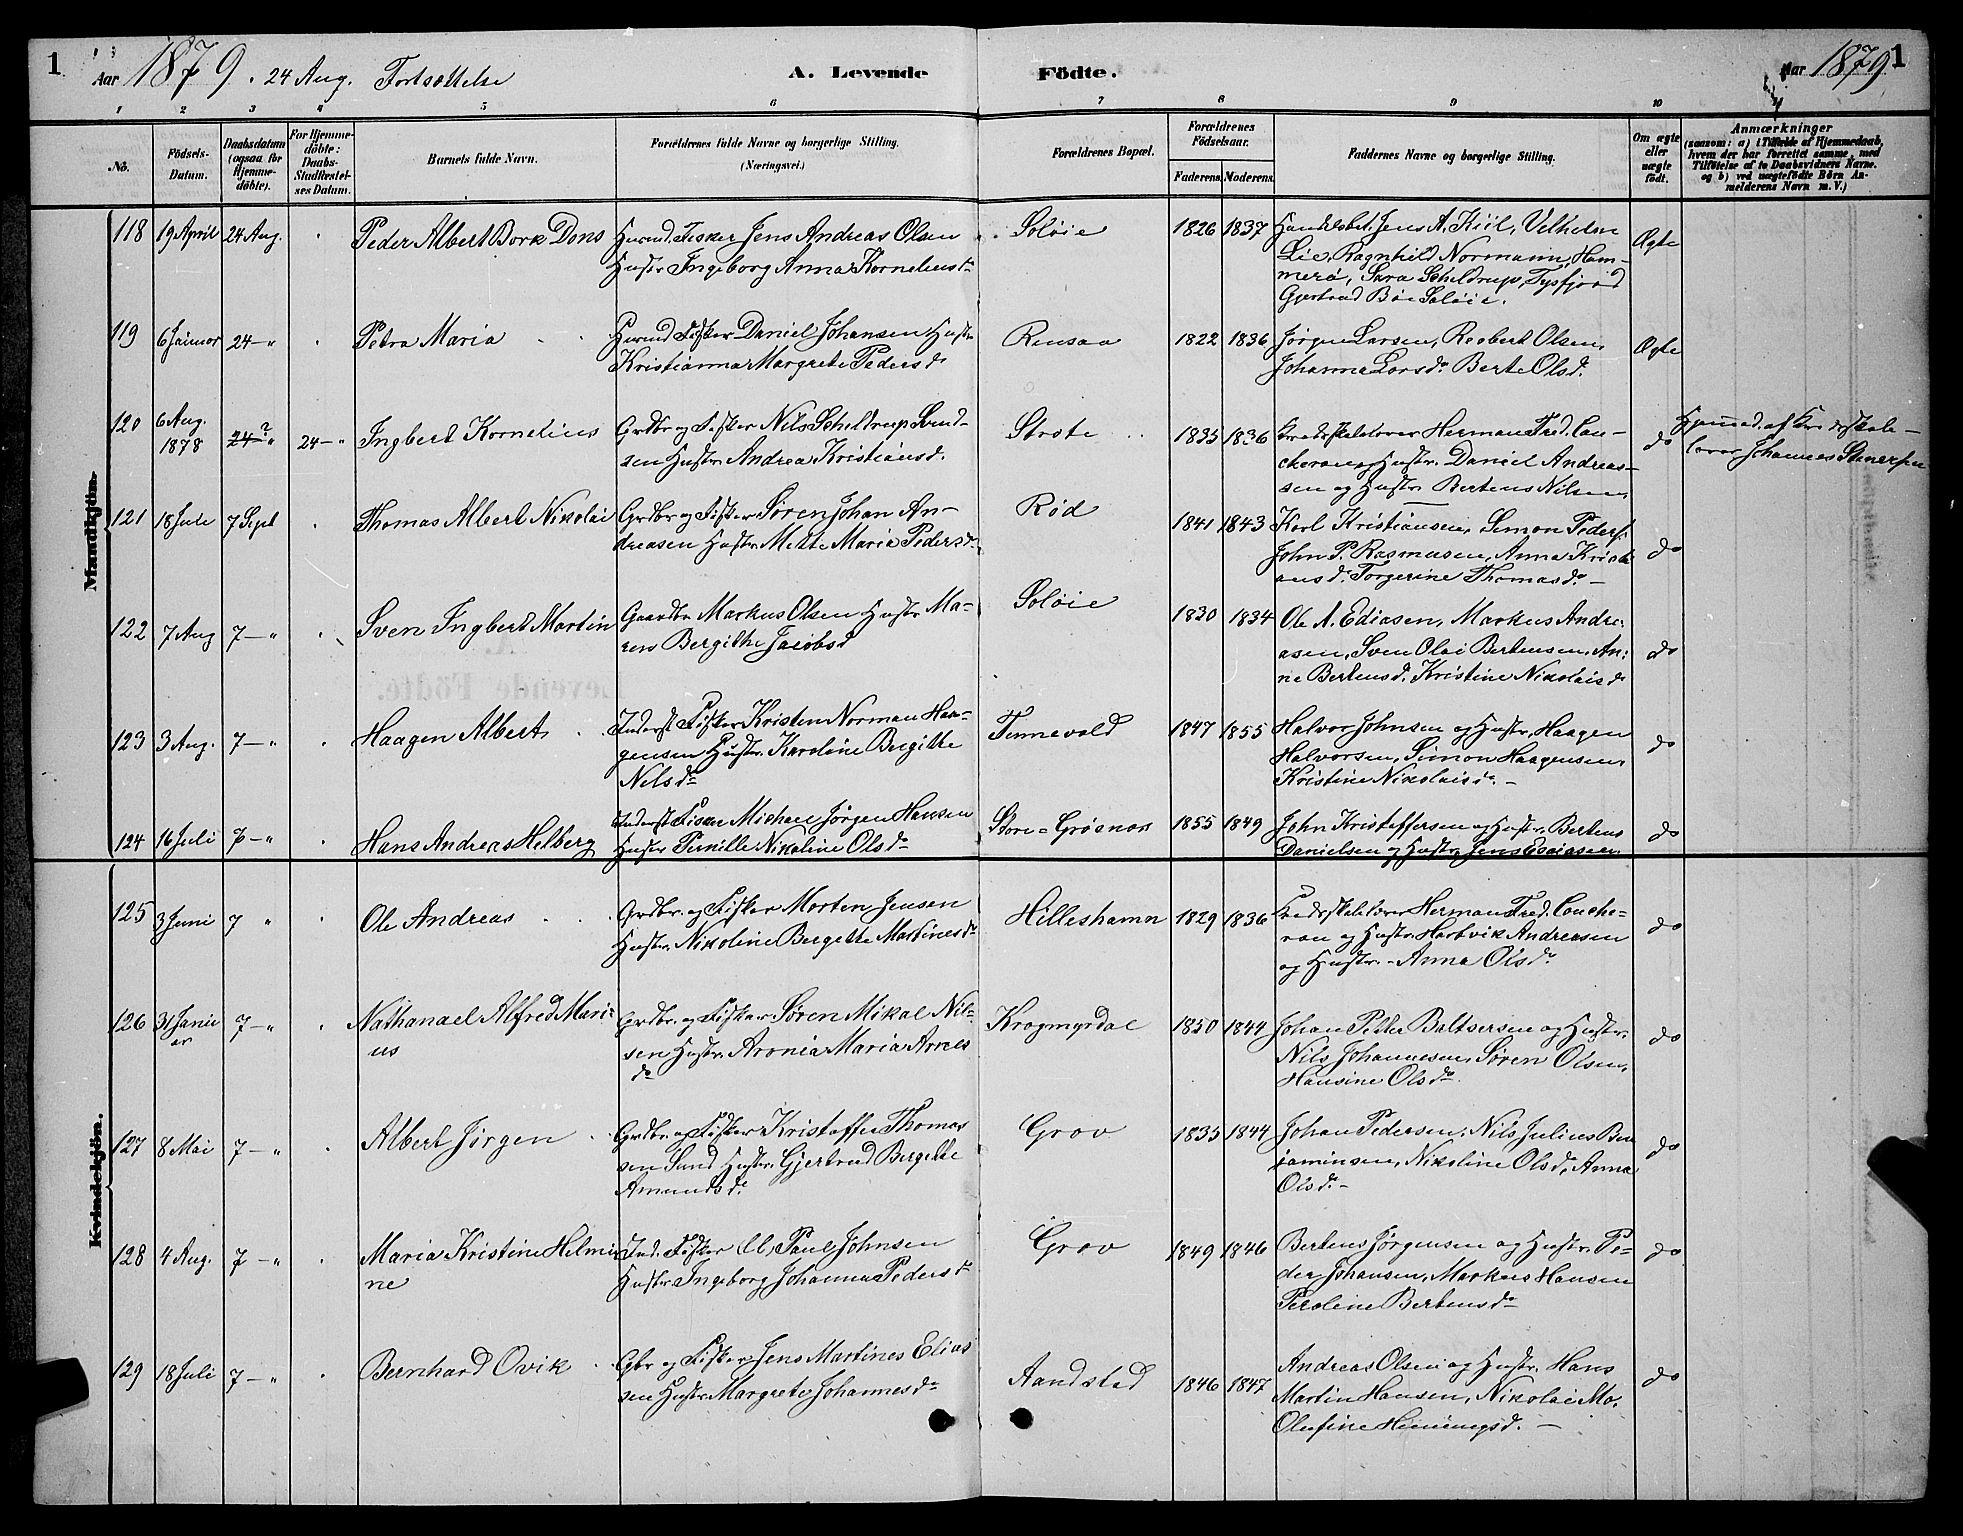 1 Aar 1879. 24 Aug. Fortsættelse A. Levende Födte. Aar 1879 1
1 2 3 4 5 6 7 8 9 10
No.
Födsels-
Datum.
Daabsdatum
(ogsaa for
Hjemme-
döbte).
For Hjemme-
döbte:
Daabs-
Stadfæstel-
ses Datum.
Barnets fulde Navn.
Forældrenes fulde Navne og borgerlige Stilling.
(Næringsvei.)
Forældrenes Bopæl.
Forældrenes
Födselsaar.
Faderens. Moderens.
Faddernes Navne og borgerlige Stilling.
Om ægte
eller
uægte
födt.
Anmærkninger
(saasom: a) i Tilfælde af Hjemmedaab,
hvem der har forrettet samme, med
Tilföielse af to Daabsvidners Navne.
og b) ved uægtefödte Börn An-
melderens Navn m. V.)
Mandkjön.
118 19 April 24 Aug. Peder Albert Bork Dons
Huusmd. Fisker Jens Andreas Olsen
Hustr. Ingeborg Anna Korneliusdr
Soløie 1826 1837
Handelsbet. Jens A. Kiil, Vilhelm
Lie, Ragnhild Normann, Ham-
merø, Sara Scheldrup, Tysfjord
Gjertrud Bøe Soløie.
Ægte
119 6 Januar 24 - " Petra Maria
Huusmd Fisker Daniel Johansen Hustr
Kristianna Margrete Pedersdr
Rensaa 1822 1836
Jørgen Larsen, Reobert Olsen,
Johanna Larsdr. Berte Olsdr.
Ægte
120 6 Aug.
1878 24 - " 24 - " Ingbert Kornelius
Grdbr og Fisker Nils Scheldrup Svend-
sen Hustr. Andrea Kristiansdr.
Strote 1835 1836
Kredsskolelærer Herman Fred. Cou-
cheron og Hustr. Daniel Andreas-
sen og Hustr Bertens Nilsen,
do
Hjemmed. af Kredsskole-
lærer Johannes Stenersen
121 18 Juli 7 Sept Thomas Albert Nikolai
Grdbr og Fisker Søren Johan An-
dreasen Hustr. Mette Maria Pedersdr.
Rød 1841 1843
Karl Kristiansen, Simon Peders.
John P. Rasmusen, Anna Kristi
ansdr. Torgerine Thomasdr. -
do
122 7 Aug 7 - " Sven Ingbert Martin
Gaardbr Markus Olsen Hustr Ma-
ren Bergithe Jacobsd
Soløie 1830 1834
Ole A. Ediasen, Markus Andre-
asen, Sven Olai Bertensen, An-
ne Bertensd. Kristine Nikolaisdr
do
123 3 Aug. 7 - " Haagen Albert
Inderst Fisker Kristen Norman Haa-
gensen Hustr. Karoline Bergitte
Nilsdr
Tennevold 1847 1855
Halvor Johnsen og Hustr. Haagen
Halvorsen, Simon Haagensen,
Kristine Nikolaisdr. -
do
124 16 Juli 7 - " Hans Andreas Helberg
Inderst Fisker Michael Jørgen Hansen
Hustr Pernille Nikoline Olsdr
Store-Grøsnas 1855 1849
John Kristoffersen og Hustr. Bertens
Danielsen og Hustr, Jens Esaiasen.
do
Kvindekjön.
125 3 Juni 7 " Ole Andreas
Grdbr. og Fisker Morten Jensen
Hustr. Nikoline Bergitte Martinesdr
Hilleshamn 1829 1836
Kredsskolelærer Herman Fred. Couche-
ron og Hustr. Hartvik Andreasen
og Hustr. - Anna Olsdr.
do
126 31 Janu
ar 7 - " Nathanael Alfred Mari-
us
Grdbr. og Fisker Søren Mikal Nil-
sen Hustr. Aronia Maria Arnes
dr
Krogmyrdal 1850 1844
Johan Petter Baltsersen og Hustr.
Nils Johannesen, Søren Olsen,
Hansine Olsdr.
do
127 8 Mai 7 - " Albert Jørgen
Grdbr. og Fisker Kristoffer Thomas
sen Sund Hustr. Gjertrud Bergitte
Amundsdr.
Grov 1835 1844
Johan Pedersen, Nils Julius Ben
jaminsen, Nikoline Olsdr, Anna
Olsdr. -
do
128 4 Aug. 7 - " Maria Kristine Helmi
ne
Ind. Fisker Paul Johnsen
Hustr. Ingeborg Johanna Pedersdr
Grov 1849 1846
Bertens Jørgensen og Hustr. Pe-
der Johansen, Markus Hansen
Peroline Bertensdr
do
129 18 Juli 7 - " Bernhard Ovik
Gbr og Fisker Jens Martines Elias
sen Hustr. Margrete Johannesdr
Aandstad 1846 1847
Andreas Olsen og Hustr. Hans
Martin Hansen, Nikolai Mo,
Olufine Henningsd. -
do